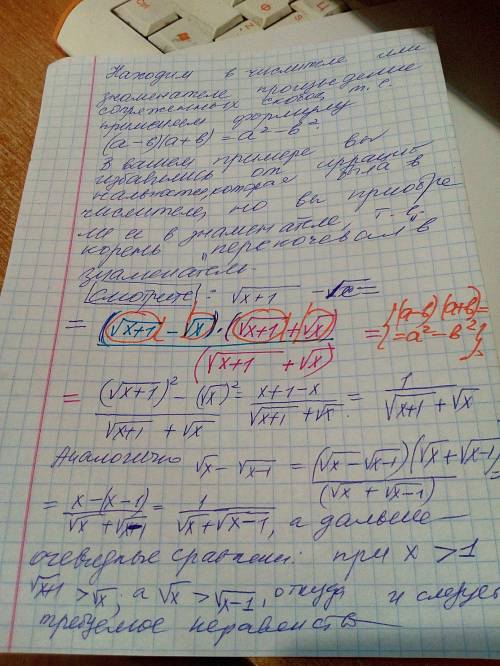 Находим в числителе или
знаменателе произведение
сопряженных скобок, т.е.
применяем формулу
(a-b)(a+b) = a² - b².
В вашем примере вы
избавились от иррацио
нальности, которая была в
числителе, но вы приобре
ли её в знаменателе, т.е.
корень "перекочевал" в
знаменатель.
Смотрите: √x+1 - √x =
= (√x+1 - √x)·(√x+1 + √x) / (√x+1 + √x) = {(a-b)(a+b)= =a²-b²}
= (√x+1)² - (√x)² / √x+1 + √x = x+1-x / √x+1 + √x = 1 / √x+1 + √x
Аналогично √x - √x-1 = (√x - √x-1)(√x + √x-1) / (√x + √x-1) =
= x-(x-1) / √x + √x-1 = 1 / √x + √x-1, а дальше —
очевидные сравнения: при x > 1
√x+1 > √x, а √x > √x-1, откуда и следует
требуемое неравенство